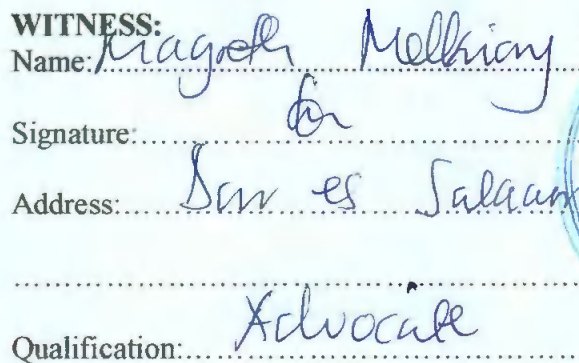 WITNESS:
Name: Magreth Melkiory
Signature:
Address: Dar es Salaam
Qualification: Advocate